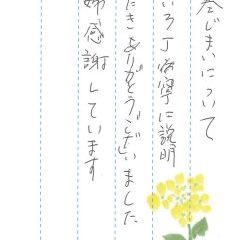 じまいについて
いろ丁寧に説明
だきありがとうございました
婦感謝しています